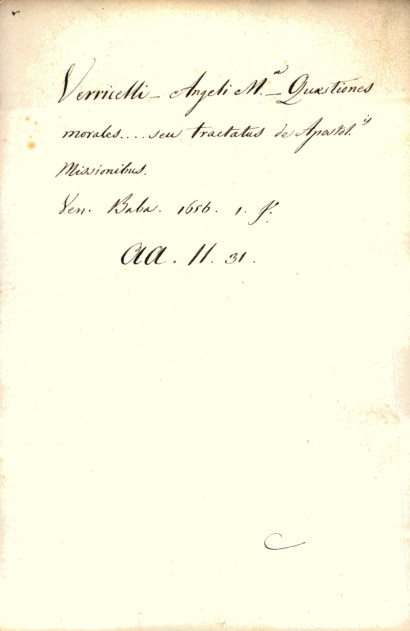 Verricelli - Angeli M.ª - Quæstiones
morales.... seu tractatus de Apostol.is
Missionibus.
Ven. Baba. 1656. 1. f.
aa. II. 31.